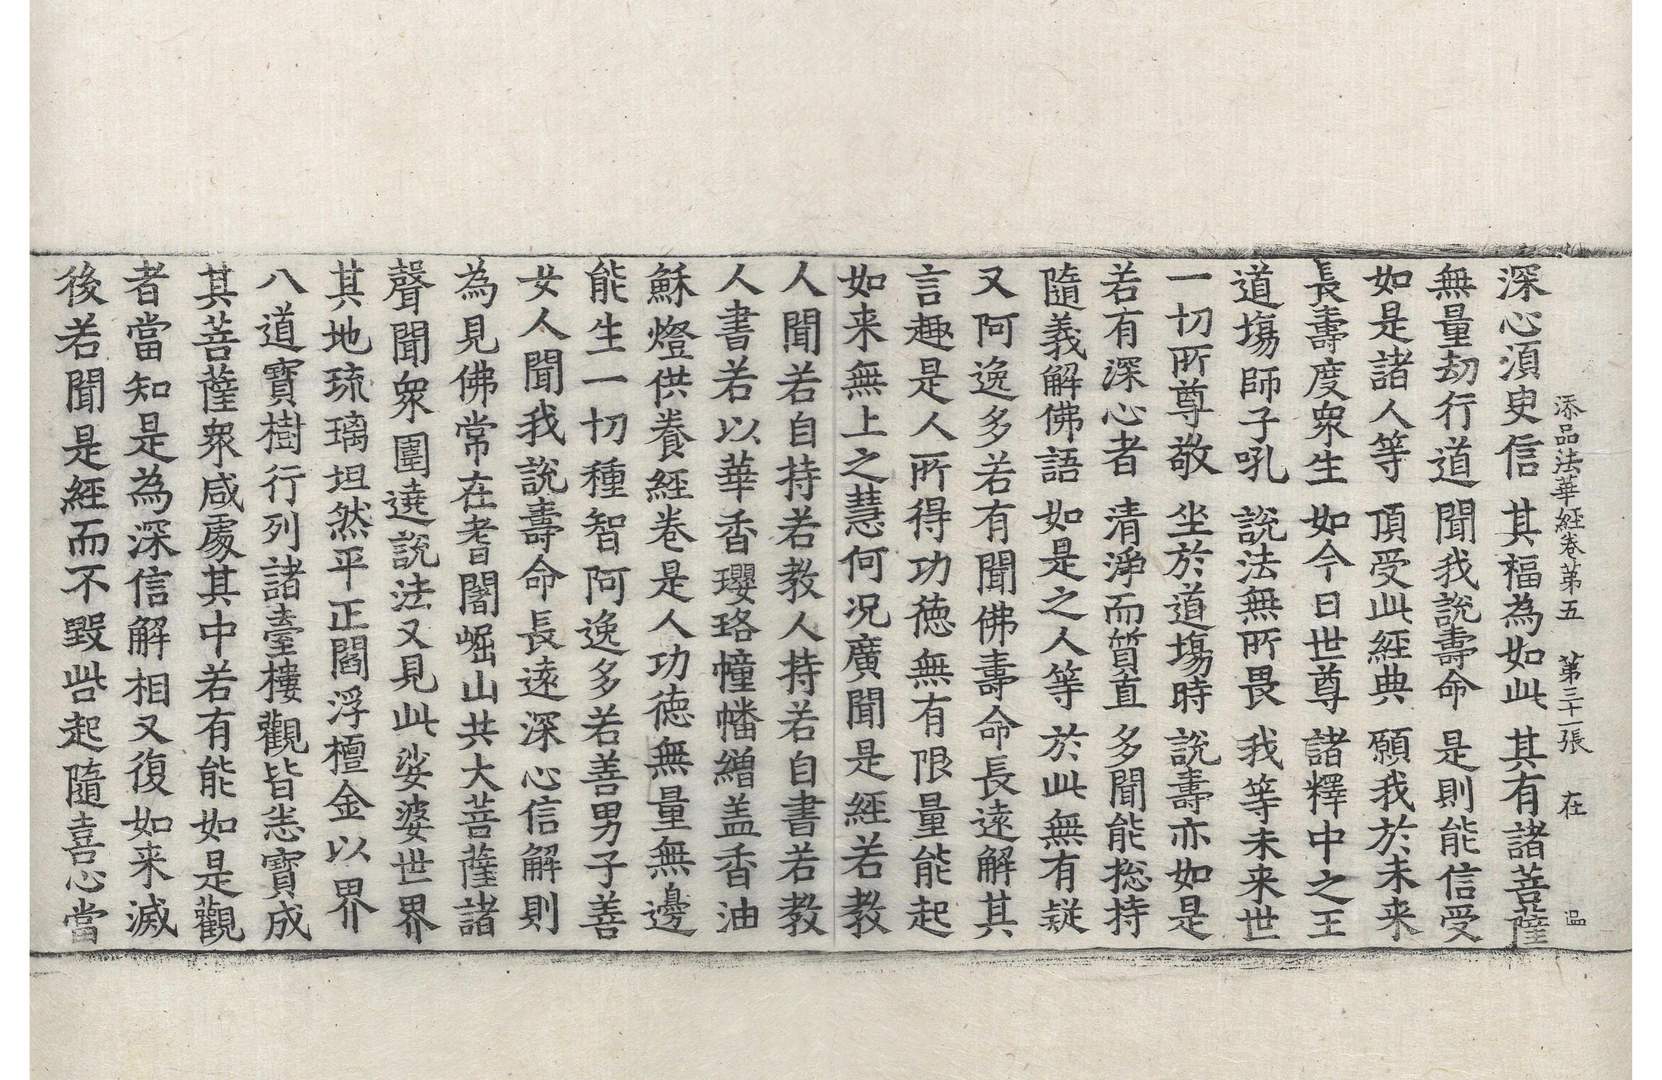 添品法華經卷第五　第三十一張　在　温
深心湏臾信　其福為如此　其有諸菩薩
無量劫行道　聞我說壽命　是則能信受
如是諸人等　頂受此經典　願我於未来
長壽度衆生　如今日世尊　諸釋中之王
道塲師子吼　說法無所畏　我等未来世
一切所尊敬　坐於道塲時　說壽亦如是
若有深心者　清淨而質直　多聞能揔持
隨義解佛語　如是之人等　於此無有疑
又阿逸多若有聞佛壽命長遠解其
言趣是人所得功徳無有限量能起
如来無上之慧何况廣聞是經若教
人聞若自持若教人持若自書若教
人書若以華香瓔珞幢幡繒盖香油
穌燈供養經卷是人功徳無量無邊
能生一切種智阿逸多若善男子善
女人聞我說壽命長遠深心信解則
為見佛常在耆闍崛山共大菩薩諸
聲聞衆圍遶說法又見此娑婆世界
其地琉璃坦然平正閻浮檀金以界
八道寶樹行列諸臺樓觀皆悉寶成
其菩薩衆咸處其中若有能如是觀
者當知是為深信解相又復如来滅
後若聞是經而不毀呰起隨喜心當